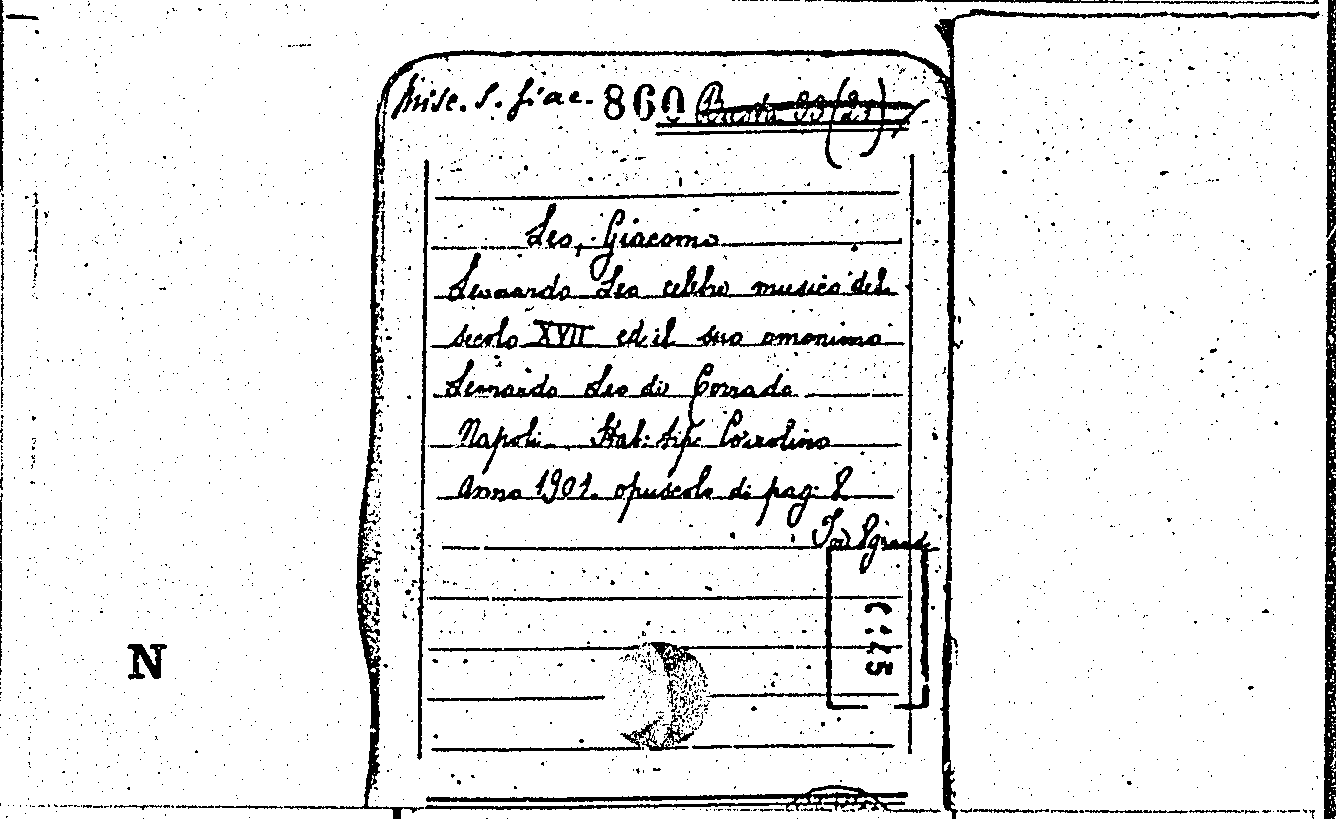 Misc. S. Giac. 860 Busta 33 (21)
Leo, Giacomo
Leonardo Leo celebre musico del
secolo XVII ed il suo omonimo
Leonardo Leo di Corrado
Napoli Stab: tip. Cozzolino
Anno 1901. opuscolo di pag: 8
N